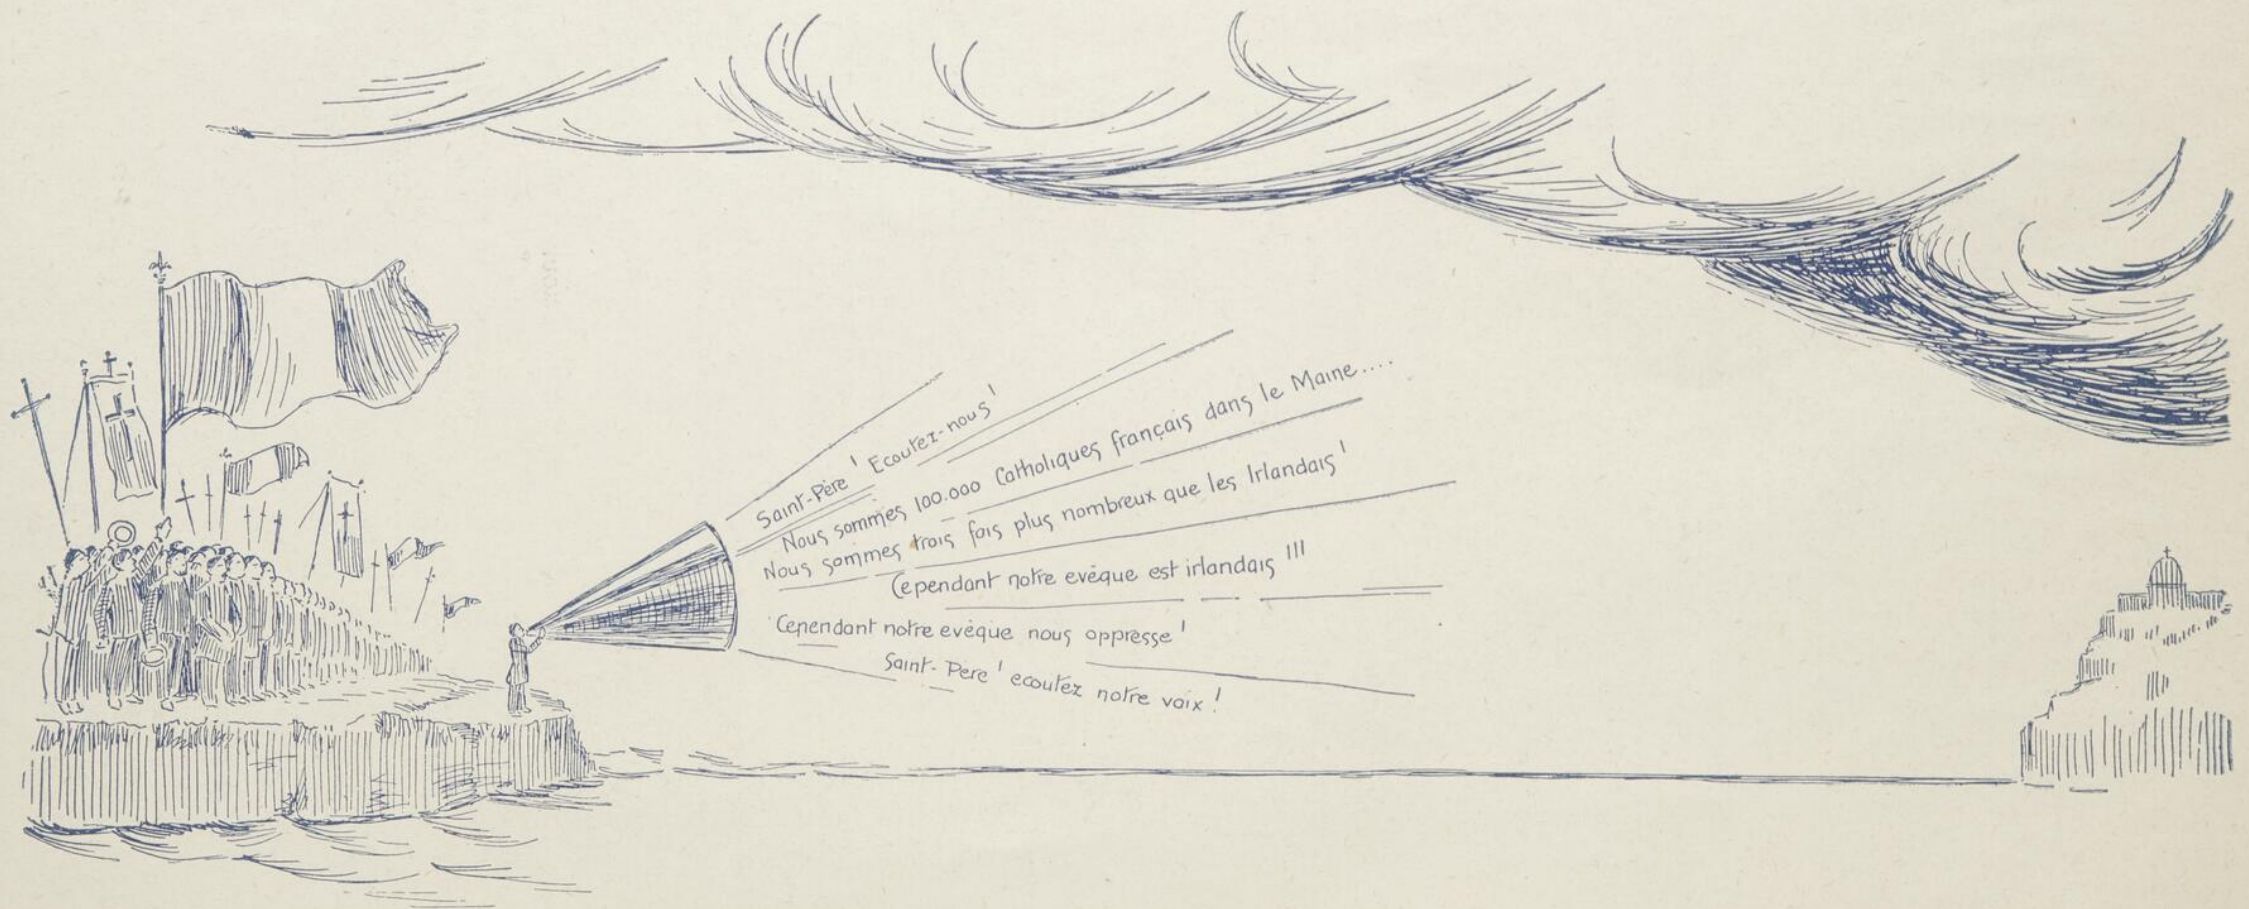 Saint-Père ! Ecoutez-nous !
Nous sommes 100.000 Catholiques français dans le Maine....
Nous sommes trois fois plus nombreux que les Irlandais !
Cependant notre evêque est irlandais !!!
Cependant notre evêque nous oppresse !
Saint-Pere ! ecoutez notre voix !